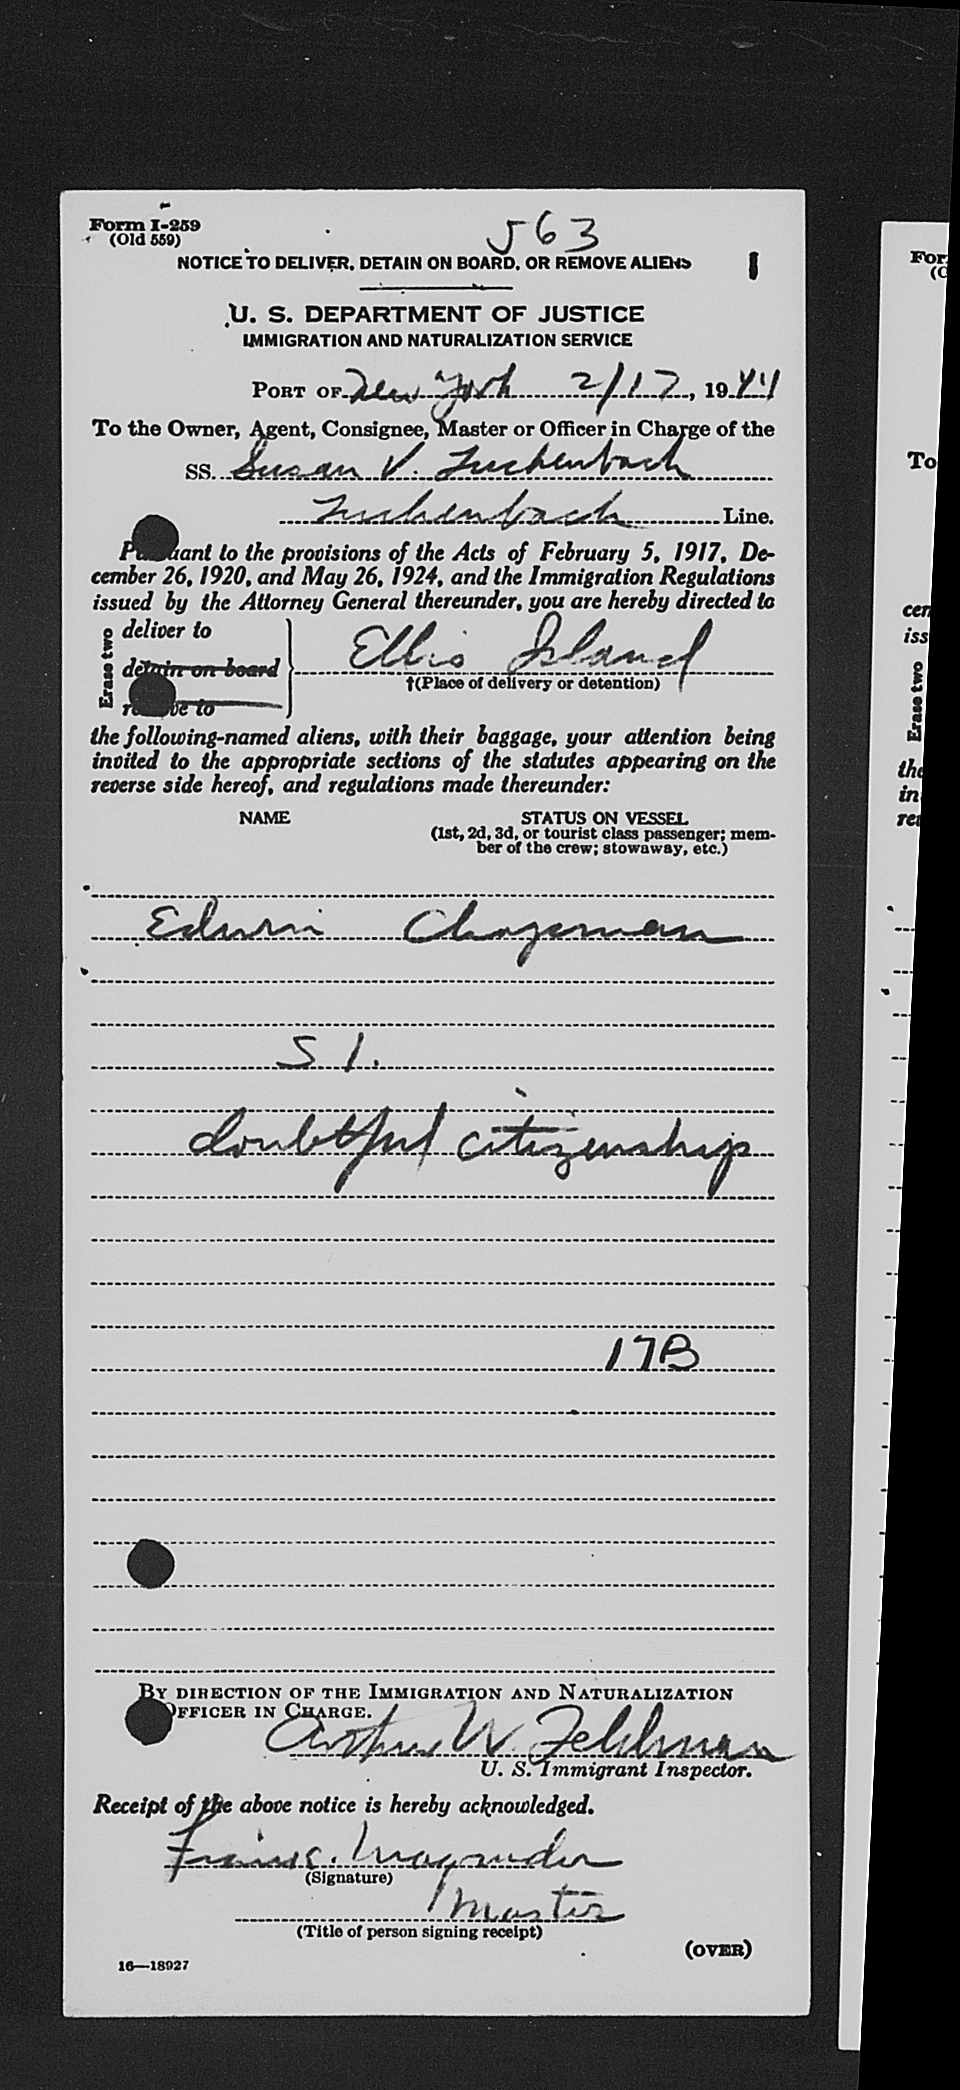 Form I-259
(Old 559)
563
NOTICE TO DELIVER, DETAIN ON BOARD, OR REMOVE ALIENS
1
U. S. DEPARTMENT OF JUSTICE
IMMIGRATION AND NATURALIZATION SERVICE
PORT OF New York 2/17, 1944
To the Owner, Agent, Consignee, Master or Officer in Charge of the
SS. Susan V. Luckenbach
Luckenbach Line.
Pursuant to the provisions of the Acts of February 5, 1917, De-
cember 26, 1920, and May 26, 1924, and the Immigration Regulations
issued by the Attorney General thereunder, you are hereby directed to
Erase two
deliver to
detain on board
remove to
Ellis Island
†(Place of delivery or detention)
the following-named aliens, with their baggage, your attention being
invited to the appropriate sections of the statutes appearing on the
reverse side hereof, and regulations made thereunder:
NAME STATUS ON VESSEL
(1st, 2d, 3d, or tourist class passenger; mem-
ber of the crew; stowaway, etc.)
Edwin Chapman
S I.
doubtful citizenship
17B
BY DIRECTION OF THE IMMIGRATION AND NATURALIZATION
OFFICER IN CHARGE.
Arthur W. Feldman
U. S. Immigrant Inspector.
Receipt of the above notice is hereby acknowledged.
Magruder
(Signature)
Master
(Title of person signing receipt)
(OVER)
16—18927
For
To
cen
iss
Erase two
the
in
rev